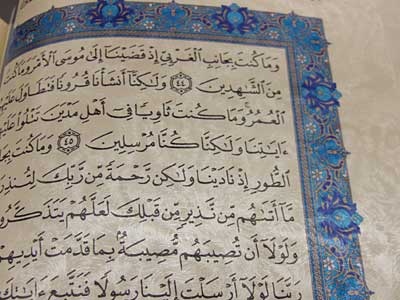 وَمَا كُنتَ بِجَانِبِ ٱلْغَرْبِيِّ إِذْ قَضَيْنَآ إِلَىٰ مُوسَى ٱلْأَمْرَ وَمَا كُنتَ
مِنَ ٱلشَّٰهِدِينَ ٤٤ وَلَٰكِنَّآ أَنشَأْنَا قُرُونًا فَتَطَاوَلَ عَلَيْهِ
ٱلْعُمُرُ ۚ وَمَا كُنتَ ثَاوِيًا فِىٓ أَهْلِ مَدْيَنَ تَتْلُوا۟ عَلَيْهِ
ءَايَٰتِنَا وَلَٰكِنَّا كُنَّا مُرْسِلِينَ ٤٥ وَمَا كُنتَ بِجَا
ٱلطُّورِ إِذْ نَادَيْنَا وَلَٰكِن رَّحْمَةً مِّن رَّبِّكَ لِتُنذِرَ
مَّآ أَتَىٰهُم مِّن نَّذِيرٍ مِّن قَبْلِكَ لَعَلَّهُمْ يَتَذَكَّرُو
وَلَوْلَآ أَن تُصِيبَهُم مُّصِيبَةٌۢ بِمَا قَدَّمَتْ أَيْدِيهِمْ
رَبَّنَا لَوْلَآ أَرْسَلْتَ إِلَيْنَا رَسُولًا فَنَتَّبِعَ ءَايَٰتِكَ